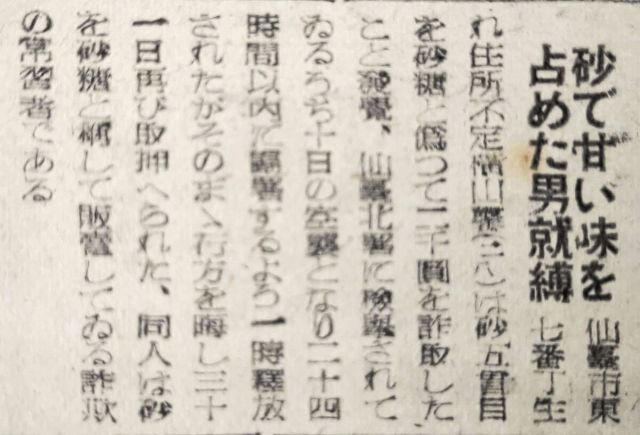 砂で甘い味を
占めた男就縛
仙臺市東
七番丁生
れ住所不定横山繁(二八)は砂五貫目
を砂糖と僞つて二千圓を詐取した
こと発覺、仙臺北署に檢擧されて
ゐるうち十日の空襲となり二十四
時間以内に歸署するよう一時釋放
されたがそのまゝ行方を晦し三十
一日再び取押へられた、同人は砂
を砂糖と稱して販賣してゐる詐欺
の常習者である